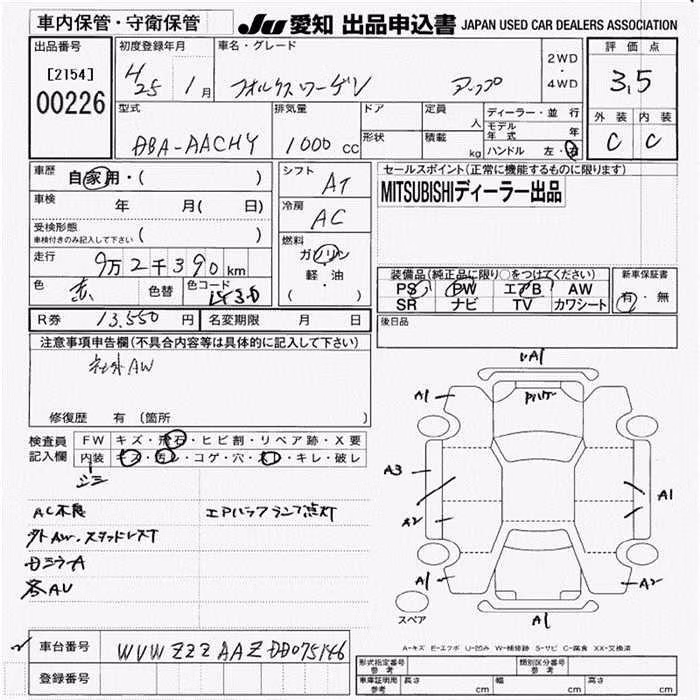 車内保管・守衛保管
JU 愛知 出品申込書 JAPAN USED CAR DEALERS ASSOCIATION
出品番号
[2154]
00226
初度登録年月
H25 1月
車名・グレード
フォルクスワーゲン アップ
2WD
・
4WD
評価点
3.5
型式
DBA-AACHY
排気量
1000 cc
ドア
形状
定員
人
積載
kg
ディーラー・並行
モデル年式 年
ハンドル 左・右
外装 内装
C C
車歴
自家用・( )
車検
年 月( 日)
受検形態
車検付きのみ記入して下さい ( )
走行
9万2千390km
色
赤
色替
色コード
シフト
AT
冷房
AC
燃料
ガソリン
軽・油
( )
セールスポイント(正常に機能するものに限ります)
MITSUBISHIディーラー出品
装備品(純正品に限り○をつけてください)
PS PW エアB AW
SR ナビ TV カワシート
新車保証書
有・無
R券 13,550円
名変期限 月 日
後日品
注意事項申告欄(不具合内容等は具体的に記入して下さい)
社外AW
修復歴 有 (箇所 )
検査員
記入欄
FW キズ・飛石・ヒビ割・リペア跡・X要
内装 キズ・汚レ・コゲ・穴・ ・キレ・破レ
シミ
AC不良 エアバックランプ点灯
外AW.スタッドレスT
A1
A1
A3
A2
A1
A1
A1
A2
スペア
A-キズ E-エクボ U-凹み W-補修跡 S-サビ C-腐食 XX-交換済
車台番号
WVWZZZAAZDD075146
登録番号
形式指定番号
参考
類別区分番号
参考
車庫証明用
参考
長さ cm
幅 cm
高さ cm